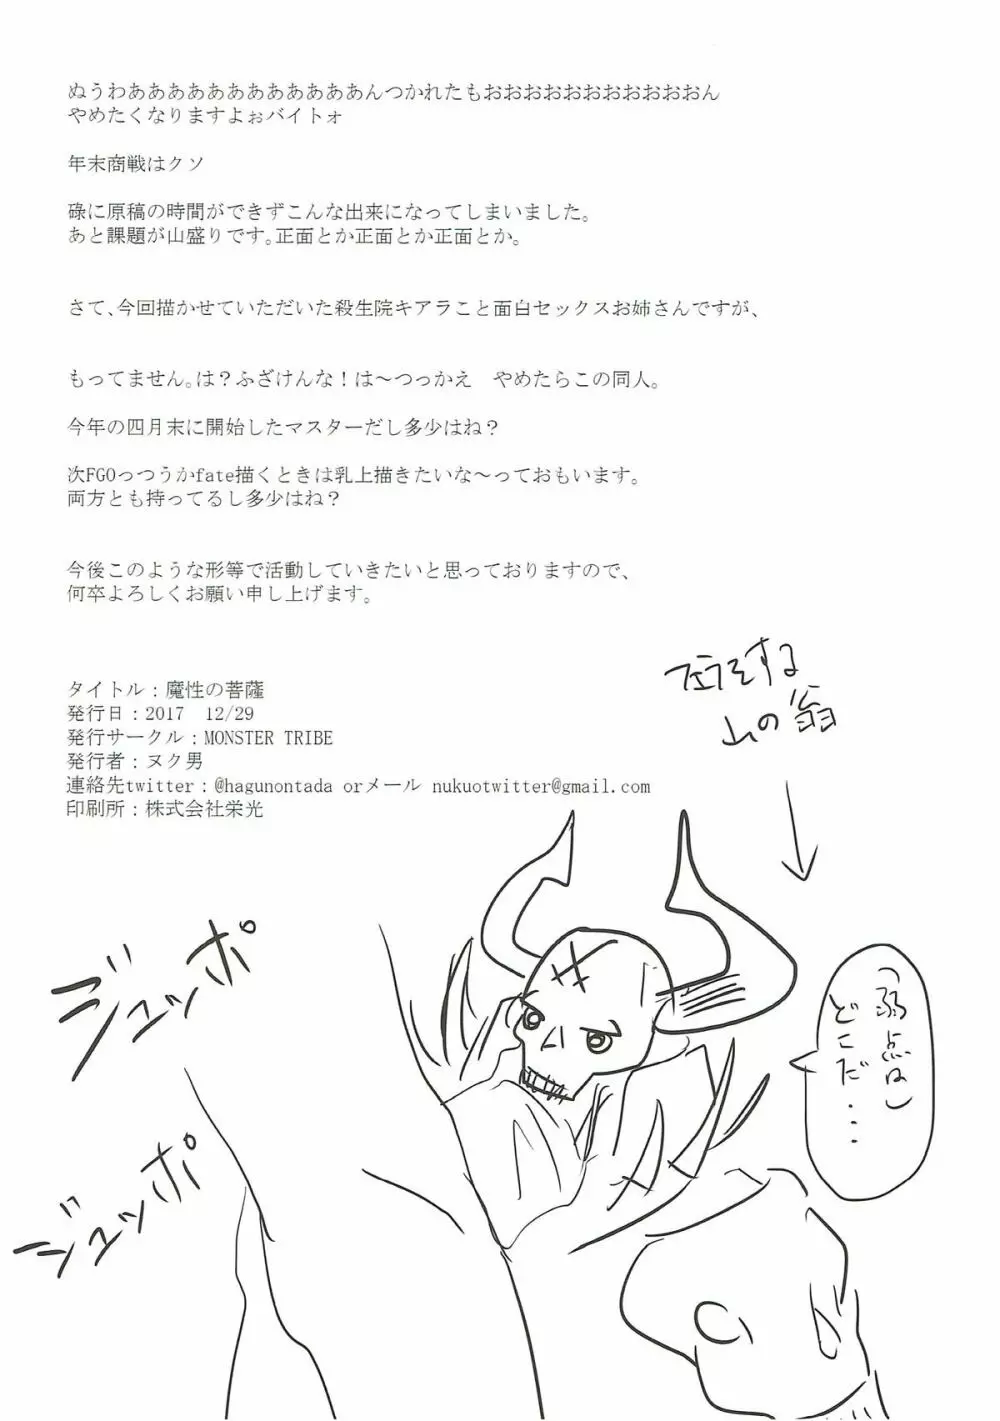 ぬうわああああああああああああんつかれたもおおおおおおおおおおおおん
やめたくなりますよぉバイトォ
年末商戦はクソ
碌に原稿の時間ができずこんな出来になってしまいました。
あと課題が山盛りです。正面とか正面とか正面とか。
さて、今回描かせていただいた殺生院キアラこと面白セックスお姉さんですが、
もってません。は？ふざけんな！は～つっかえ　やめたらこの同人。
今年の四月末に開始したマスターだし多少はね？
次FGOっつうかfate描くときは乳上描きたいな～っておもいます。
両方とも持ってるし多少はね？
今後このような形等で活動していきたいと思っておりますので、
何卒よろしくお願い申し上げます。
タイトル：魔性の菩薩
発行日：2017　12/29
発行サークル：MONSTER TRIBE
発行者：ヌク男
連絡先twitter：@hagunontada orメール nukuotwitter@gmail.com
印刷所：株式会社栄光
フェラをする
山の翁
ジュッポ
ジュッポ
（弱点は
どこだ・・・